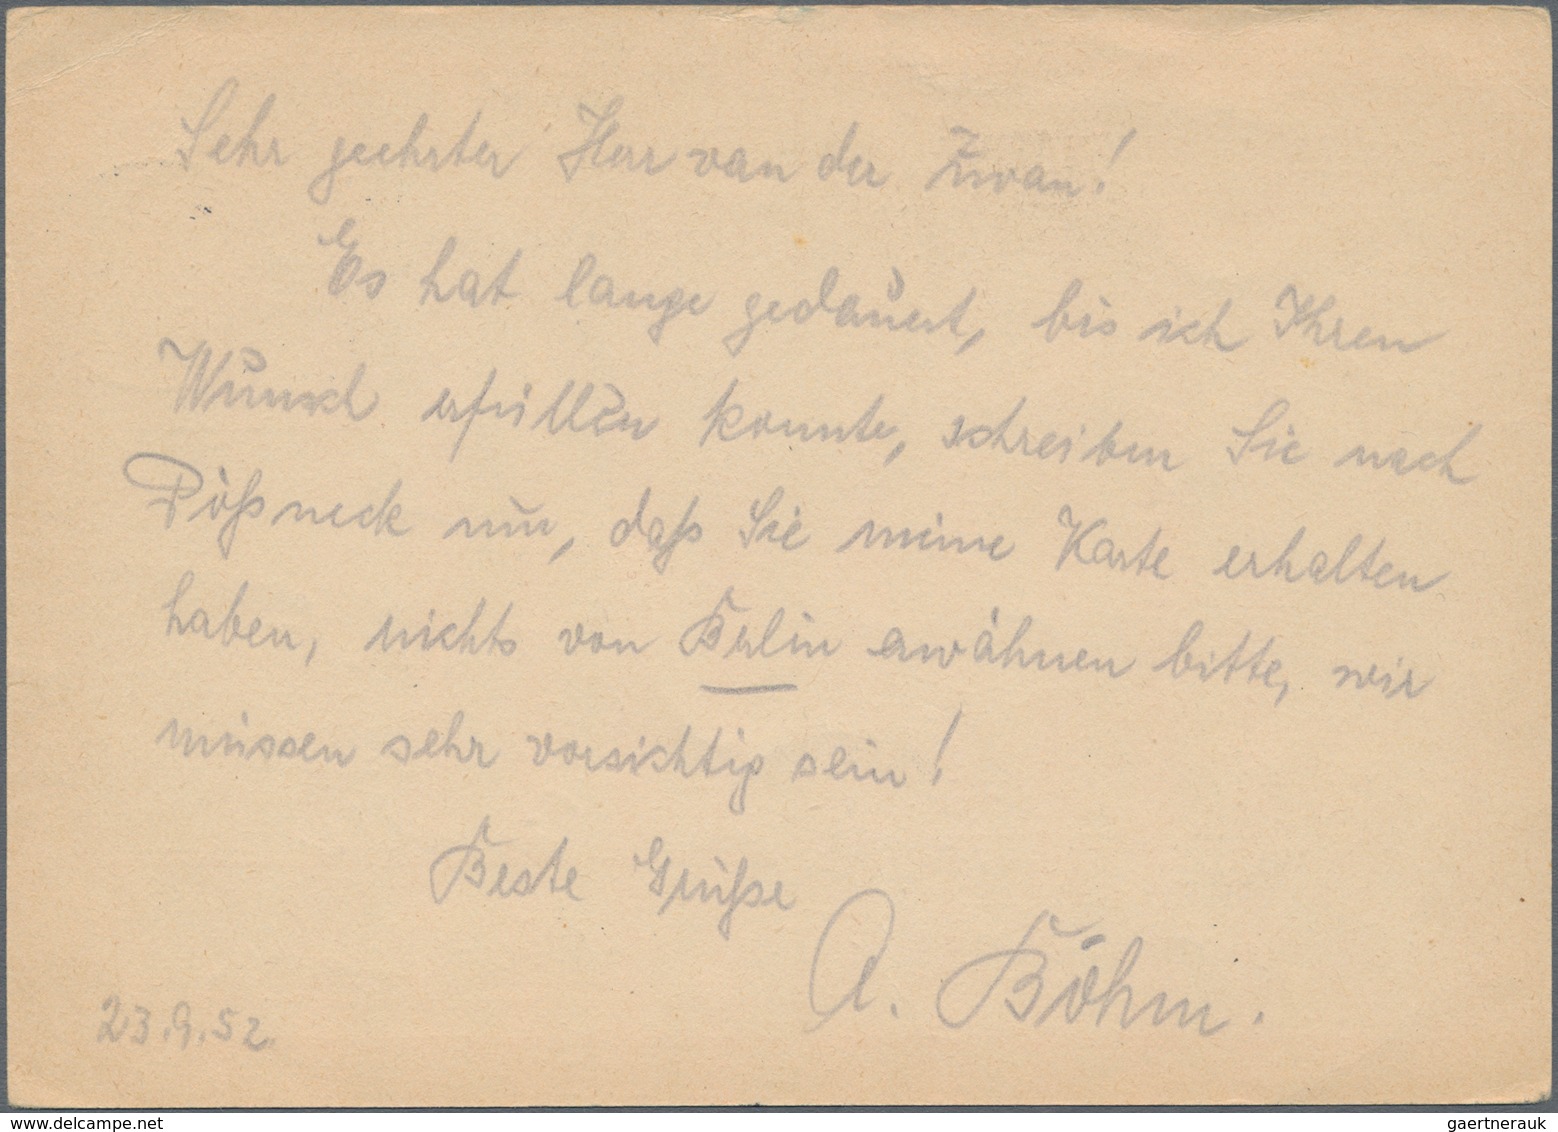 Sehr geehrter Herr van der Zwan!
Es hat lange gedauert, bis ich Ihren
Wunsch erfüllen konnte, schreiben Sie nach
Pößneck nur, daß Sie meine Karte erhalten
haben, nichts von Berlin erwähnen bitte, wir
müssen sehr vorsichtig sein!
Beste Grüße
A. Böhm.
23.9.52.
delcampe.net
gaertnerauk